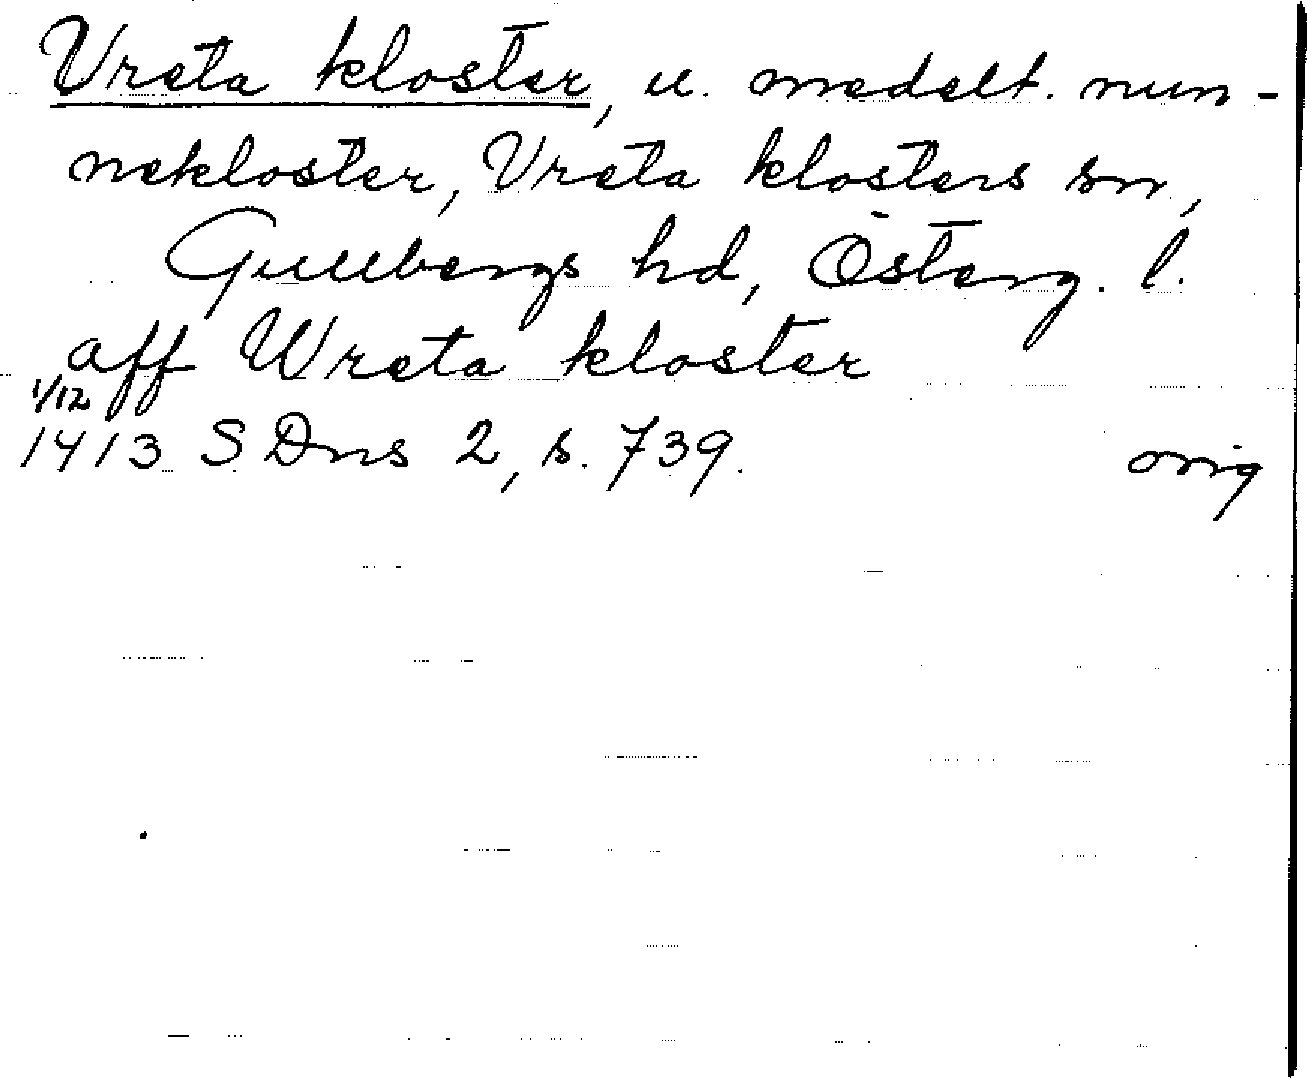 Vreta kloster, u. medelt. nun-
nekloster, Vreta klosters sn,
Gullbergs hd, Österg. l.
aff Wreta kloster
1/12
1413 SDns 2, s. 739.
orig